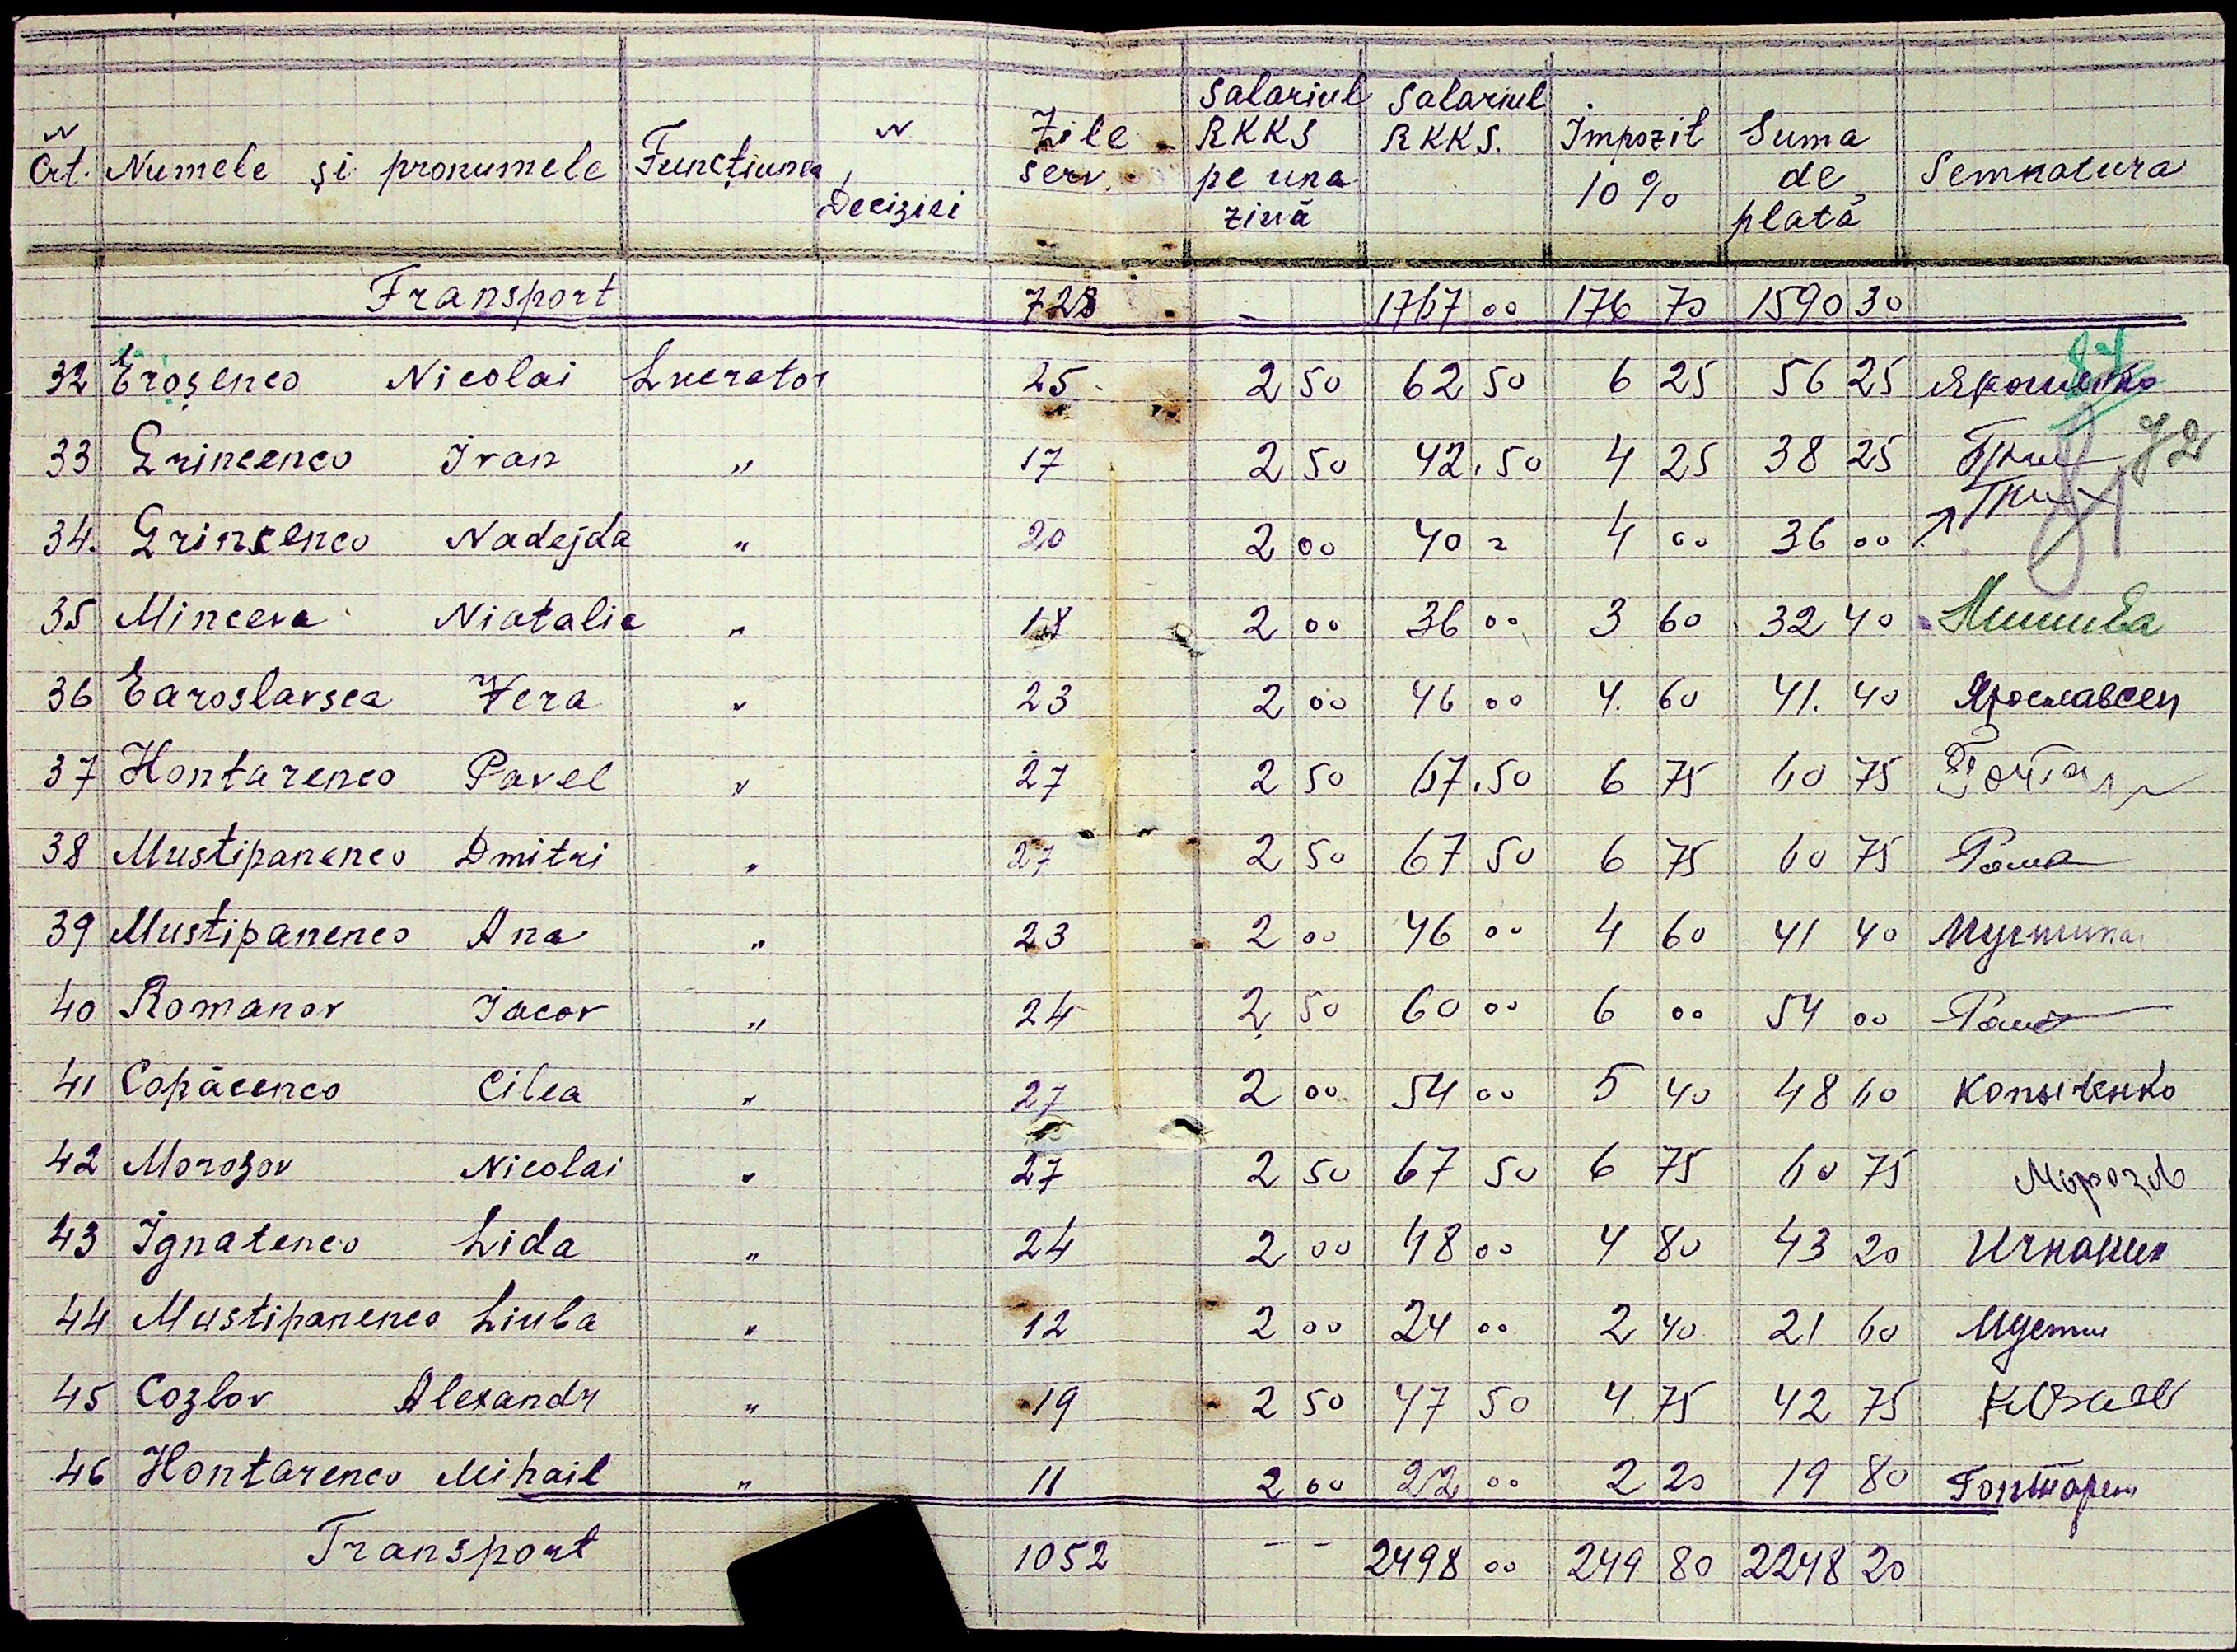 N Crt. Numele și pronumele Funcțiunea N Deciziei Zile serv. Salariul RKKS pe una zină Salariul RKKS. Impozit 10% Suma de plată Semnatura
Transport 728 - 1767 00 176 70 1590 30
32 Eroșenco Nicolai Lucrator 25 2 50 62 50 6 25 56 25 Ярошенко
33 Grincenco Ivan " 17 2 50 42.50 4 25 38 25 Грин
34. Grincenco Nadejda " 20 2 00 40 - 4 00 36 00 Грин
35 Minceva Niatalia " 18 2 00 36 00 3 60 32 40
36 Earoslavsca Vera " 23 2 00 46 00 4. 60 41. 40 Ярославсец
37 Hontarenco Pavel " 27 2 50 67.50 6 75 60 75 Гонтар
38 Mustipanenco Dmitri " 27 2 50 67 50 6 75 60 75 Рома
39 Mustipanenco Ana " 23 2 00 46 00 4 60 41 40 Мустипа
40 Romanov Iacov " 24 2 50 60 00 6 00 54 00 Рома
41 Copăcenco Cilea " 27 2 00 54 00 5 40 48 60 Копыченко
42 Morozov Nicolai " 27 2 50 67 50 6 75 60 75 Морозов
43 Ignatenco Lida " 24 2 00 48 00 4 80 43 20
44 Mustipanenco Liuba " 12 2 00 24 00 2 40 21 60 Мусти
45 Cozlov Alexandr " 19 2 50 47 50 4 75 42 75
46 Hontarenco Mihail " 11 2 00 22 00 2 20 19 80 Гонтарен
Transport 1052 -- 2498 00 249 80 2248 20